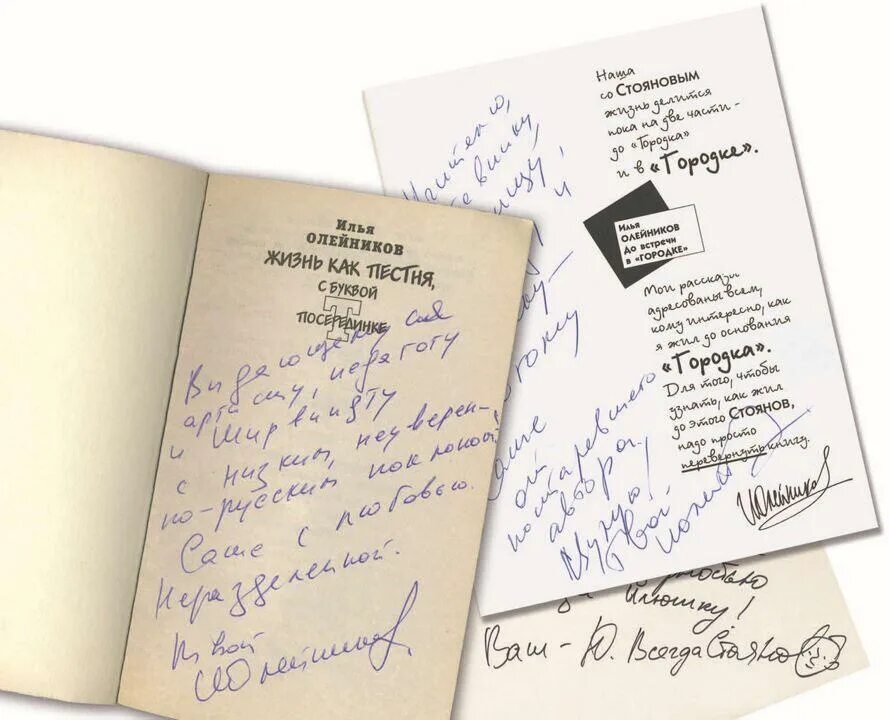 Илья
ОЛЕЙНИКОВ
ЖИЗНЬ КАК ПЕСТНЯ,
С БУКВОЙ
Т
ПОСЕРЕДИНКЕ
артисту, педагогу
и Ширвиндту
с низким, неуверен-
но-русским поклоном.
Саше с любовью.
Неразделенной.
Твой
ИОлейников
Наша
со СТОЯНОВЫМ
жизнь делится
пока на две части –
до «Городка»
и в «Городке».
Илья
ОЛЕЙНИКОВ
До встречи
в «ГОРОДКЕ»
Мои рассказы
адресованы всем,
кому интересно, как
я жил до основания
«Городка».
Для того, чтобы
узнать, как жил
до этого СТОЯНОВ,
надо просто
перевернуть книгу.
ИОлейников
Саше
от
постаревшего
автора.
Целую!
Твой
Илюшку!
Ваш – Ю. Всегда Стоянов